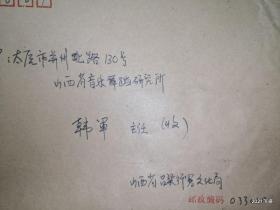 太原市并州北路130号
山西省音乐舞蹈研究所
韩军 主任(收)
山西省吕梁师专文化局
邮政编码 033